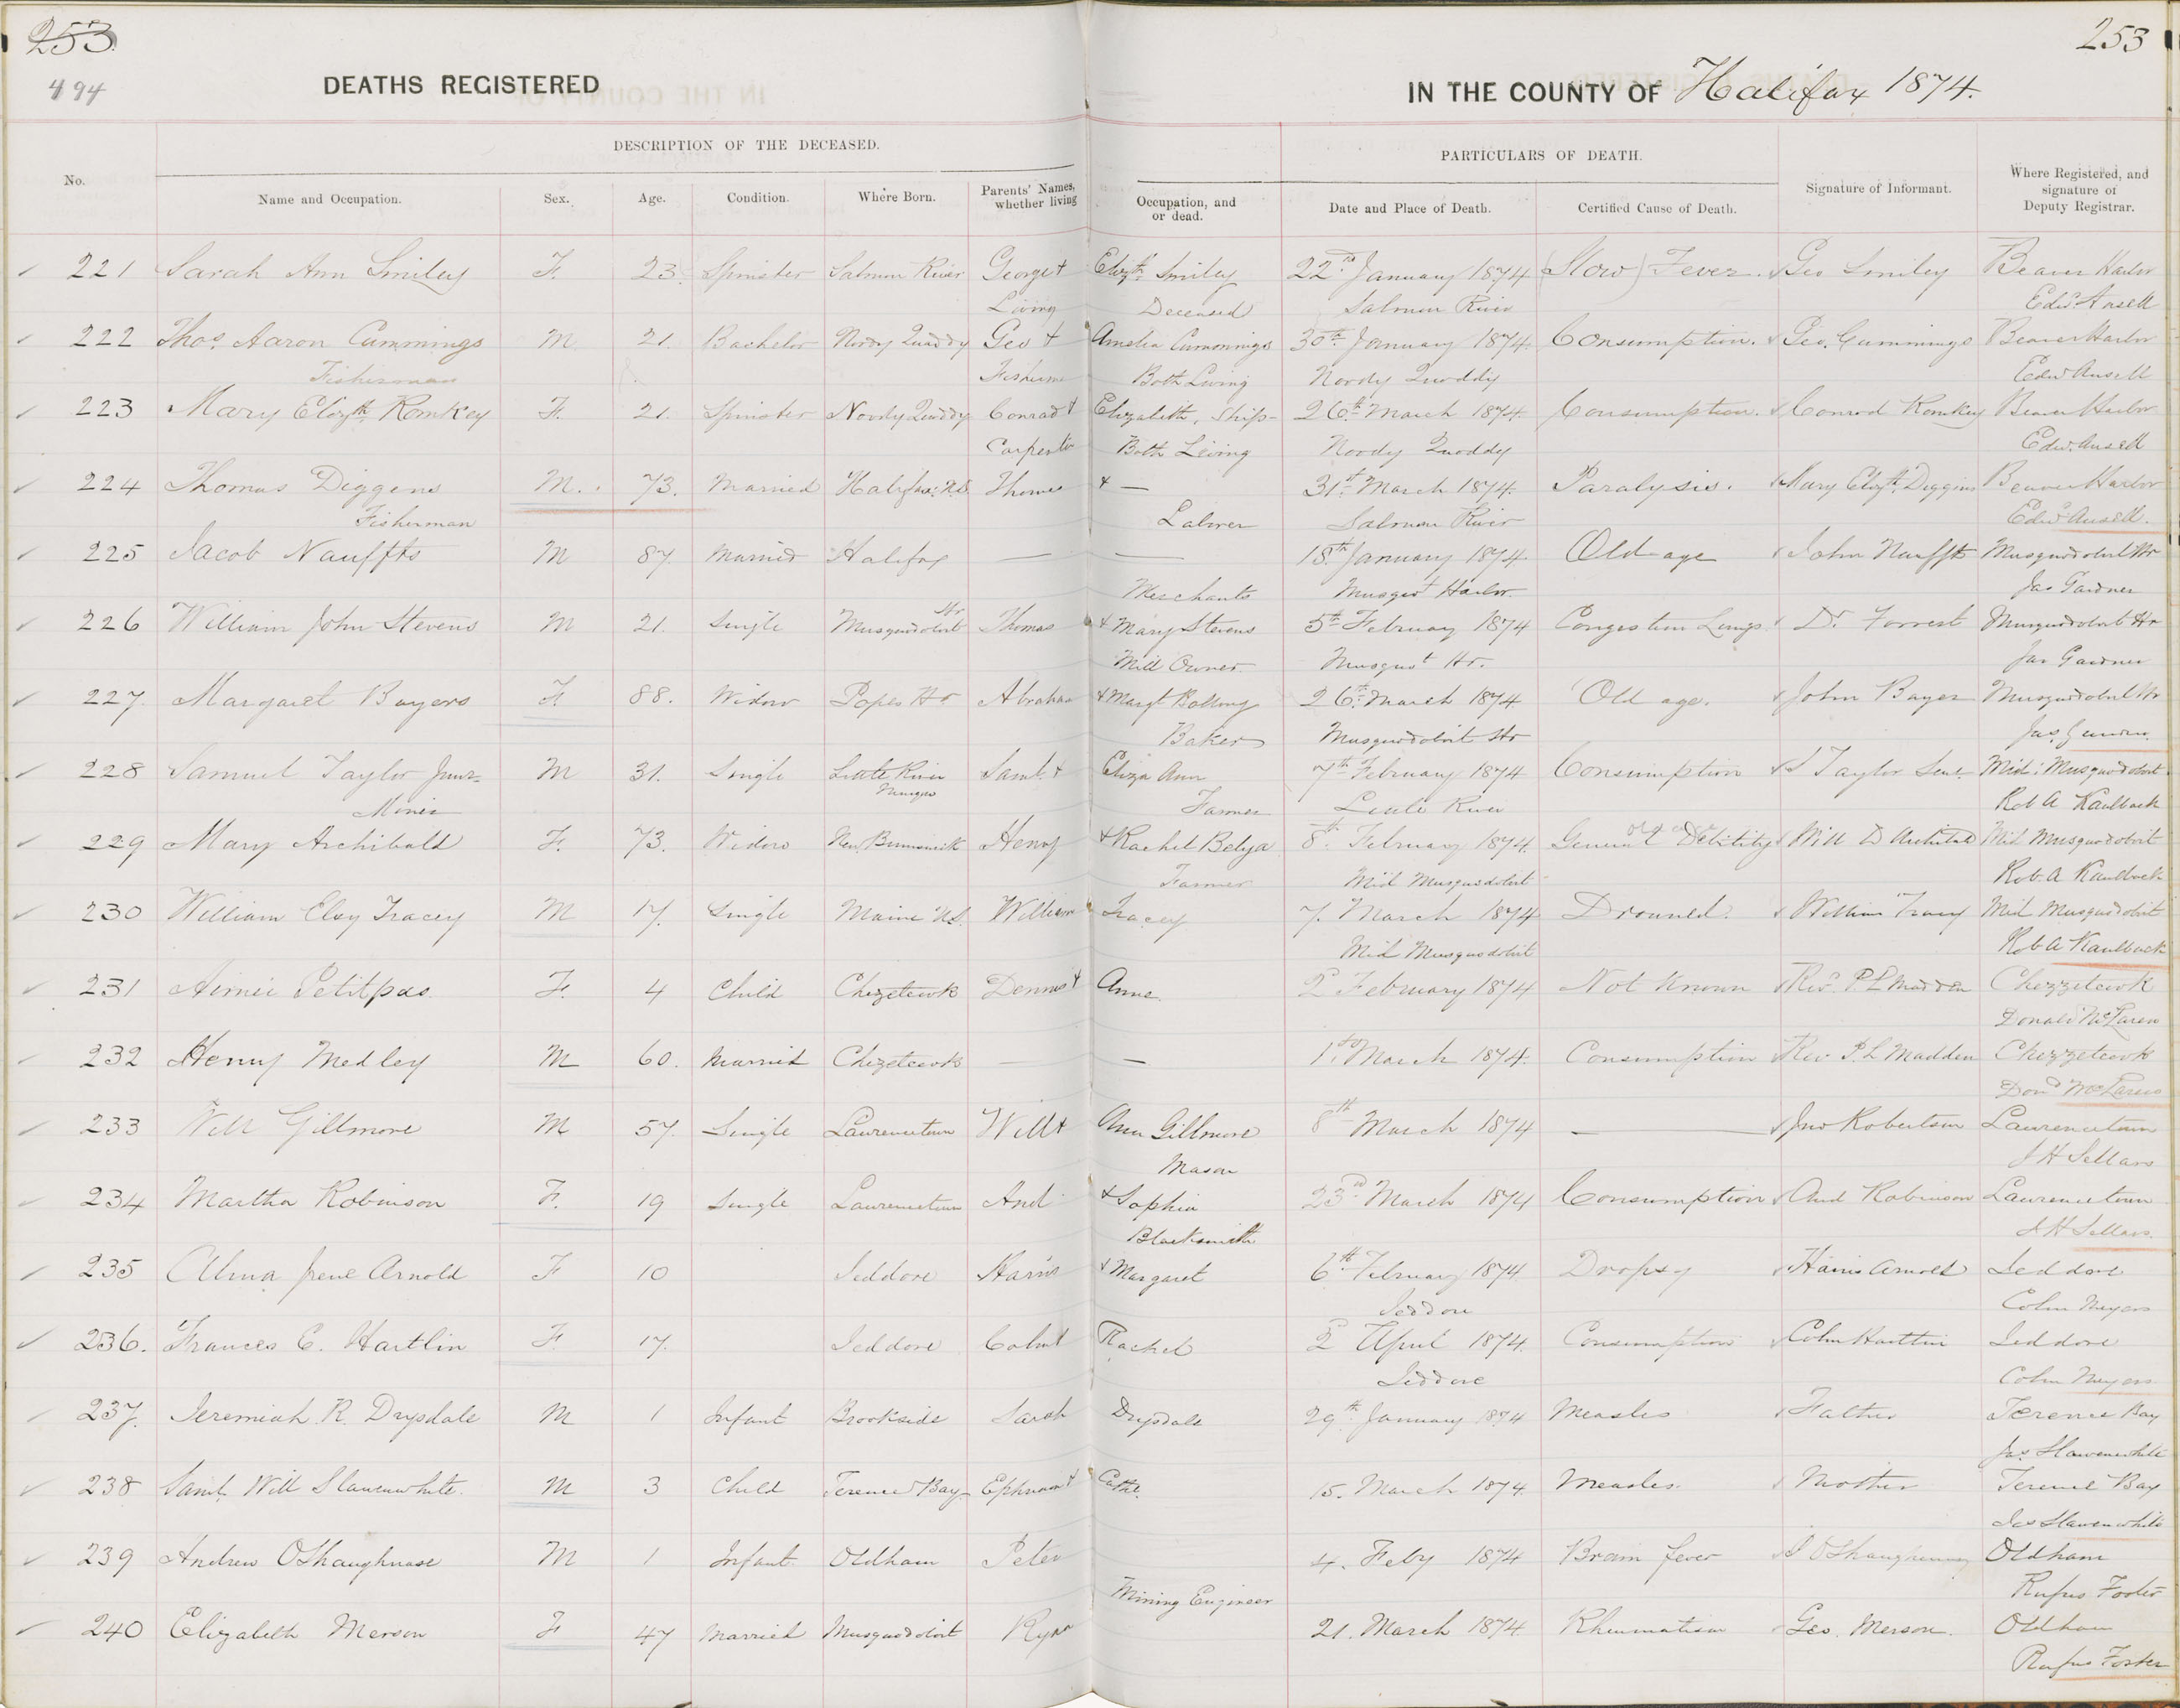 253
253
494
DEATHS REGISTERED
IN THE COUNTY OF Halifax 1874.
DESCRIPTION OF THE DECEASED.
PARTICULARS OF DEATH.
No.
Name and Occupation.
Sex.
Age.
Condition.
Where Born.
Parents' Names, whether living
Occupation, and or dead.
Date and Place of Death.
Certified Cause of Death.
Signature of Informant.
Where Registered, and signature of Deputy Registrar.
221 Sarah Ann Smiley F. 23. Spinster Salmon River George & Elizth Smiley 22nd January 1874 (Slow) Fever. Geo Smiley Beaver Harbor
Living Deceased Salmon River Edwd Ansell
222 Thos. Aaron Cummings M 21. Bachelor Noody Quoddy Geo & Amelia Cummings 30th January 1874. Consumption. Geo. Cummings Beaver Harbor
Fisherman Both Living Noody Quoddy Edwd Ansell
223 Mary Elizth Romkey F. 21. Spinster Noody Quoddy Conrad & Elizabeth, Ship- 26th March 1874. Consumption. Conrod Romkey Beaver Harbor
Carpenter Both Living Noody Quoddy Edwd Ansell
224 Thomas Diggens M. 73. Married Halifax N.S. Thomas & — 31st March 1874. Paralysis. Mary Elizth Diggins Beaver Harbor
Fisherman Labrer Salmon River Edwd Ansell.
225 Jacob Nauffts M 87. Married Halifax — — 18th January 1874. Old age John Nauffts Musquodoboit Hr
Merchants Musqot Harbor. Jas Gardner
226 William John Stevens M 21. Single Musquodoboit Hr Thomas & Mary Stevens 5th February 1874 Congestion Lungs Dr. Forrest Musquodoboit Hr
Mill Owner. Musquot Hr. Jas Gardner
227. Margaret Bayers F 88. Widow Popes Hr Abraham & Margt Bollong 26th March 1874 Old age. John Bayer Musquodoboit Hr
Baker Musquodoboit Hr Jas. Gardner
228 Samuel Taylor Junr. M 31. Single Little River Musquo Saml. & Eliza Ann 7th February 1874 Consumption S Taylor Senr. Mid: Musquodoboit
Miner Farmer Little River Rob A Kaulback
229 Mary Archibald F. 73. Widow New Brunswick Henry & Rachel Belya 8th February 1874. General old age Debility Will D Archibald Mid Musquodoboit
Farmer Mid Musquodoboit Rob. A Kaulback
230 William Elsy Tracey M 17. Single Maine US. William Tracey 7. March 1874 Drowned. William Tracy Mid Musquodoboit
Mid Musquodoboit Rob A Kaulback
231 Aimee Petitpas F. 4 Child Chezetcook Dennis & Anne. 2d February 1874 Not Known Revd. P.L Madden Chezzetcook
Donald McLaren
232 Henry Medley M 60. Married Chezetcook — — 1st March 1874. Consumption Rev P.L Madden Chezzetcook
Dond McLaren
233 Will Gillmore M 57. Single Lawrencetown Will & Ann Gillmore 8th March 1874 — Jno Robertson Lawrencetown
Mason J H Sellars
234 Martha Robinson F. 19 Single Lawrencetown And & Sophia 23rd March 1874 Consumption And Robinson Lawrencetown
Blacksmith J H Sellars.
235 Alma Irene Arnold F 10 Jeddore Harris & Margaret 6th February 1874. Dropsy Harris Arnold Jeddore
Jeddore Colin Meyers
236. Frances E. Hartlin F 17. Jeddore Colin & Rachel 2d April 1874. Consumption Colin Hartlin Jeddore
Jeddore Colin Meyers
237. Jeremiah R. Drysdale M 1 Infant Brookside Sarah Drysdale 29th January 1874 Measles Father Terence Bay
Jas. Slawenwhite
238 Saml. Will Slaunwhite. M 3 Child Terence Bay Ephraim & Cathe. 15. March 1874. Measles. Mother Terence Bay
Jas Slawenwhite
239 Andrew OShaughnase M 1 Infant Oldham Peter 4. Feby 1874 Brain fever OShaughnessy Oldham
Mining Engineer Rufus Foster
240 Elizabeth Merson F 47 Married Musquodoboit Ryan 21. March 1874. Rheumatism Geo. Merson. Oldham
Rufus Foster